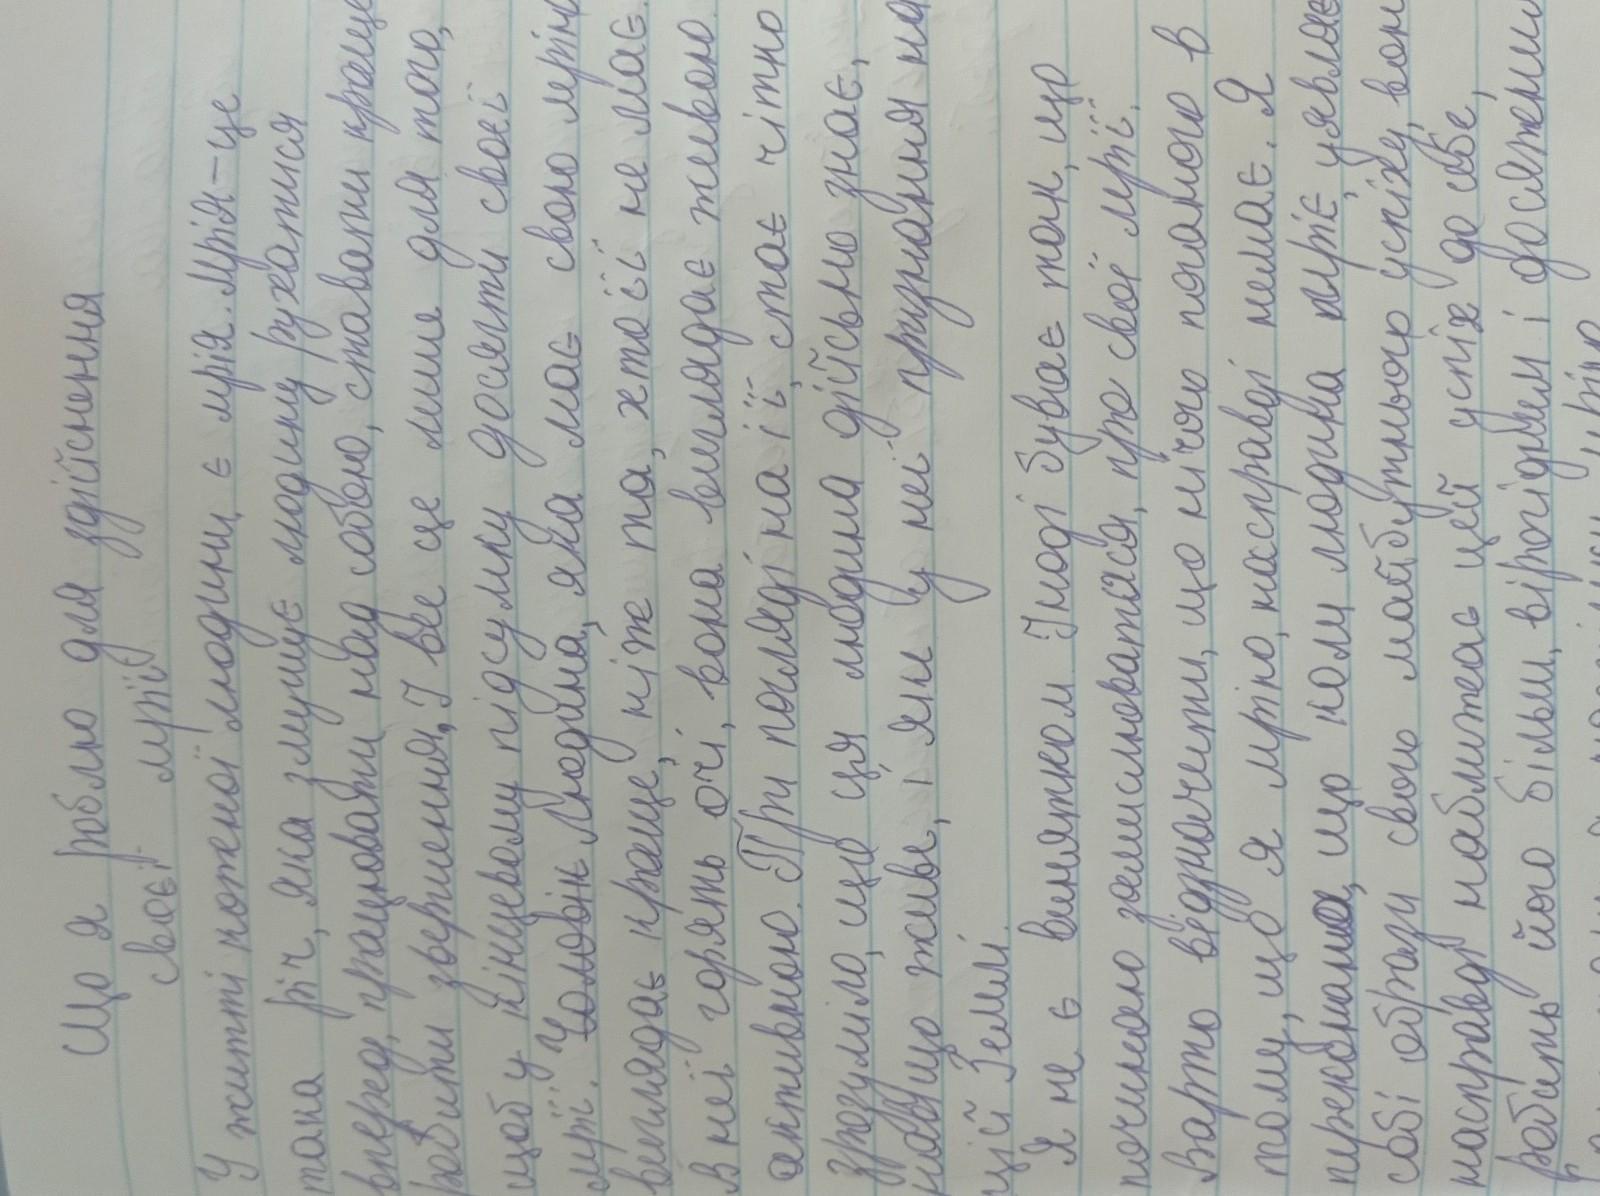 Що я роблю для здійснення
своєї мрії
У житті кожної людини є мрія. Мрія – це
така річ, яка змушує людину рухатися
вперед, працювати над собою, ставати краще
робити звершення. І все це лише для того,
щоб у кінцевому підсумку досягти своєї
мрії. Чоловік Людина, яка має свою мрію
виглядає краще, ніж та, хто її не має.
В неї горять очі, вона виглядає живою
активною. При погляді на її, стає чітко
зрозуміло, що ця людина дійсно знає,
навіщо живе, і яки у неї призначення на
цій Землі.
Я не є винятком. Іноді буває так, що
починаю замислюватися, про свої мрії.
Варто відзначити, що нічого поганого в
тому, що я мрію, насправді немає. Я
переконана, що коли людина мріє, уявляє
собі образи свого майбутнього успіху, вони
насправді наближає цей успіх до себе,
робить його більш вірогідним і досяжним